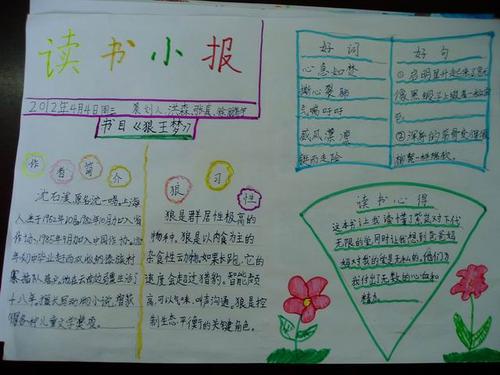 读书小报
2012年4月4日 周三 策划人:洪森
书目《狼王梦》
作者简介
沈石溪,原名沈一鸣,上海
人,生于1952年10月
作协
年初中毕业赴西双版纳傣族村
寨插队落户,他在云南边疆生活了
十八年,擅长写动物小说,曾获
各种儿童文学奖项。
狼习性
狼是群居性极高的
物种。狼是以肉食为主的
杂食性动物,如果长跑,它的
速度会超过猎豹。智能颇
高,可以气味、叫声沟通。狼是控
制生态平衡的关键角色。
好词
心急如焚
撕心裂肺
气喘吁吁
威风凛凛
铤而走险
好句
①启明星升起来了
像黑暇
②
读书心得
这本书让我读懂了紫岚对下代
无限的爱,同时让我想到爸爸
妈妈对我的爱是无私的。他们为
我付出了无数的心血和
精力。